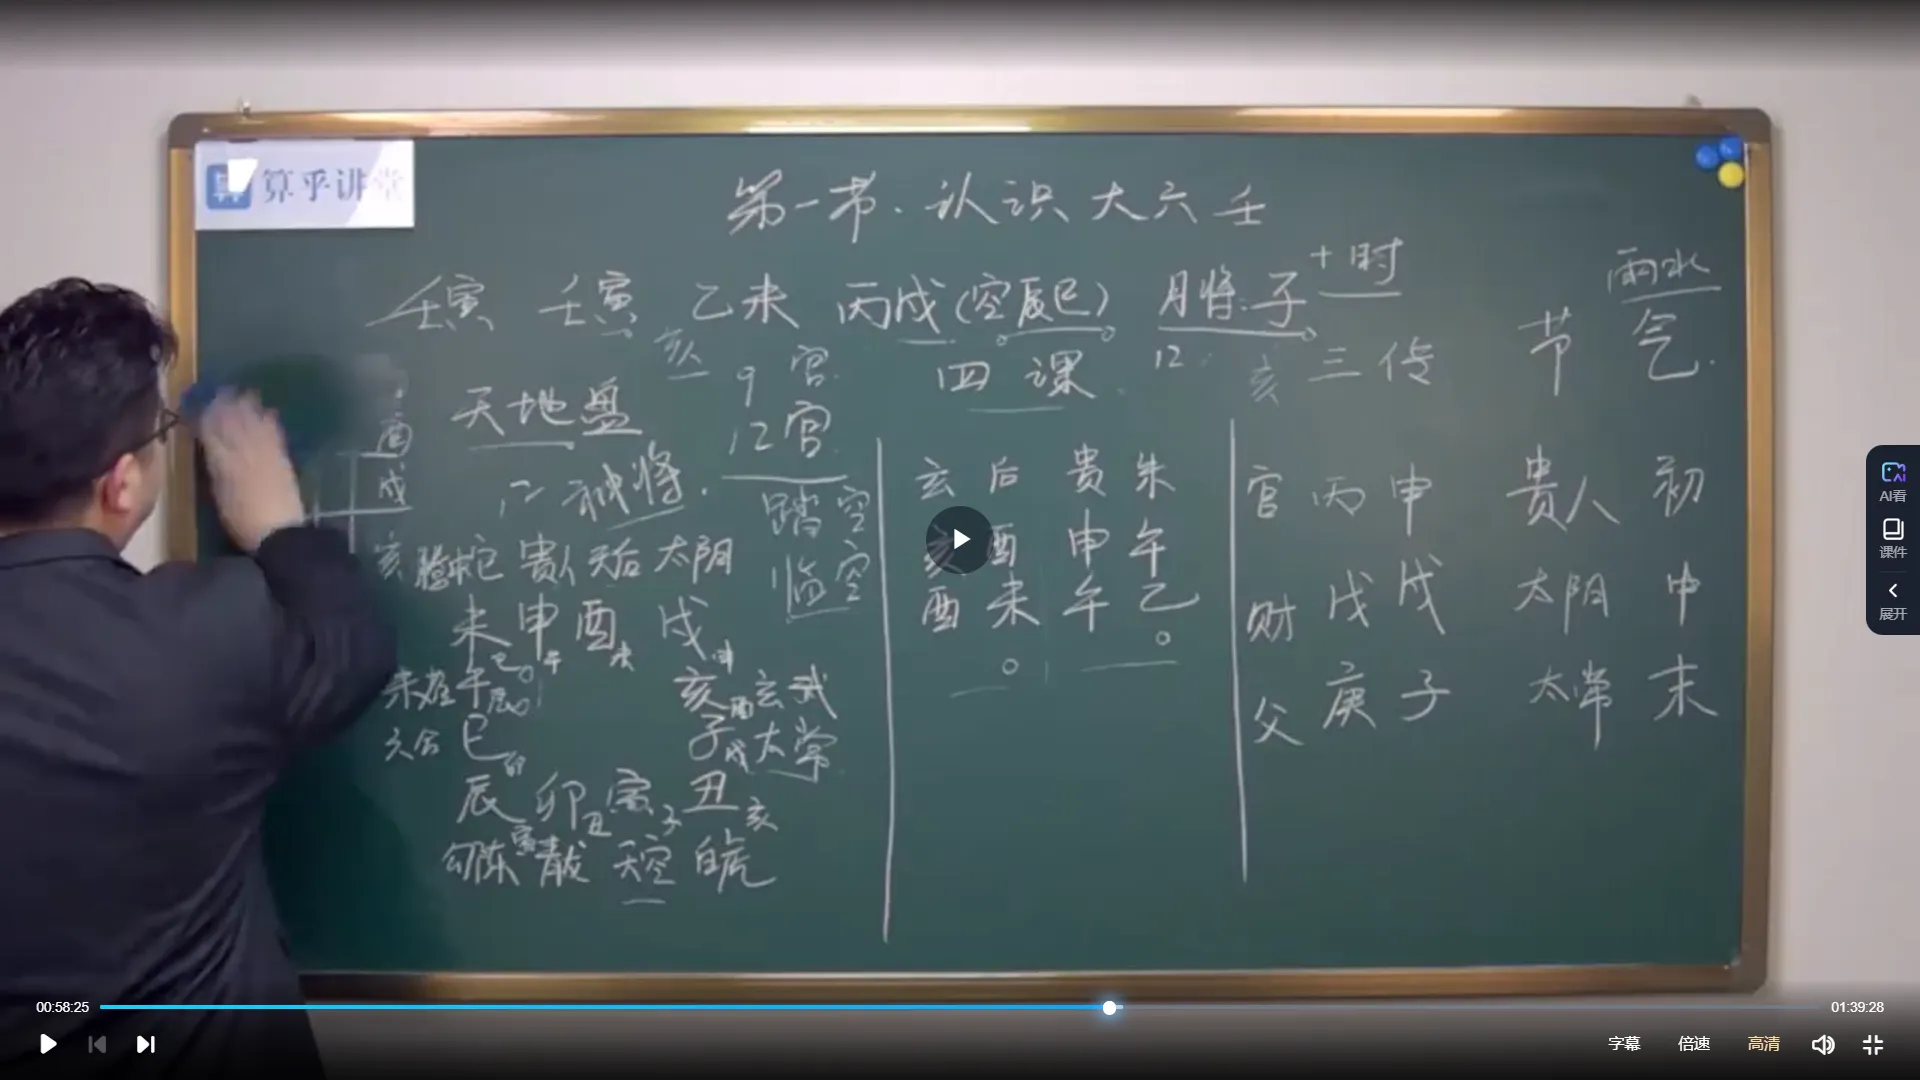 算乎讲堂
第一节.认识大六壬
壬寅 壬寅 乙未 丙戌(空辰巳) 月将:子 十时 雨水
亥 9宫 四课 12 亥 三传 节 气
天地盘 12宫
酉
戌
12神将. 踏空
临空
亥 螣蛇 贵人 天后 太阴
未 申 酉 戌
巳 午 未 申
朱雀 午 辰 亥 酉 玄武
六合 巳 卯 子 戌 太常
辰 卯 丑 寅 子 丑 亥
勾陈 寅 青龙 天空 白虎
玄 后 贵 朱
亥 酉 申 午
酉 未 午 乙
官 丙 申 贵人 初
财 戊 戌 太阴 中
父 庚 子 太常 末
AI看
课件
展开
00:58:25 01:39:28
字幕 倍速 高清